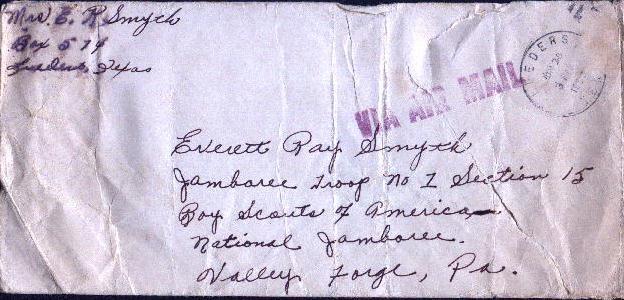 Mrs. E. R. Smyth
Box 574
Lueders, Texas
VIA AIR MAIL
Everett Ray Smyth
Jamboree Troop No 1 Section 15
Boy Scouts of America
National Jamboree.
Valley Forge, Pa.